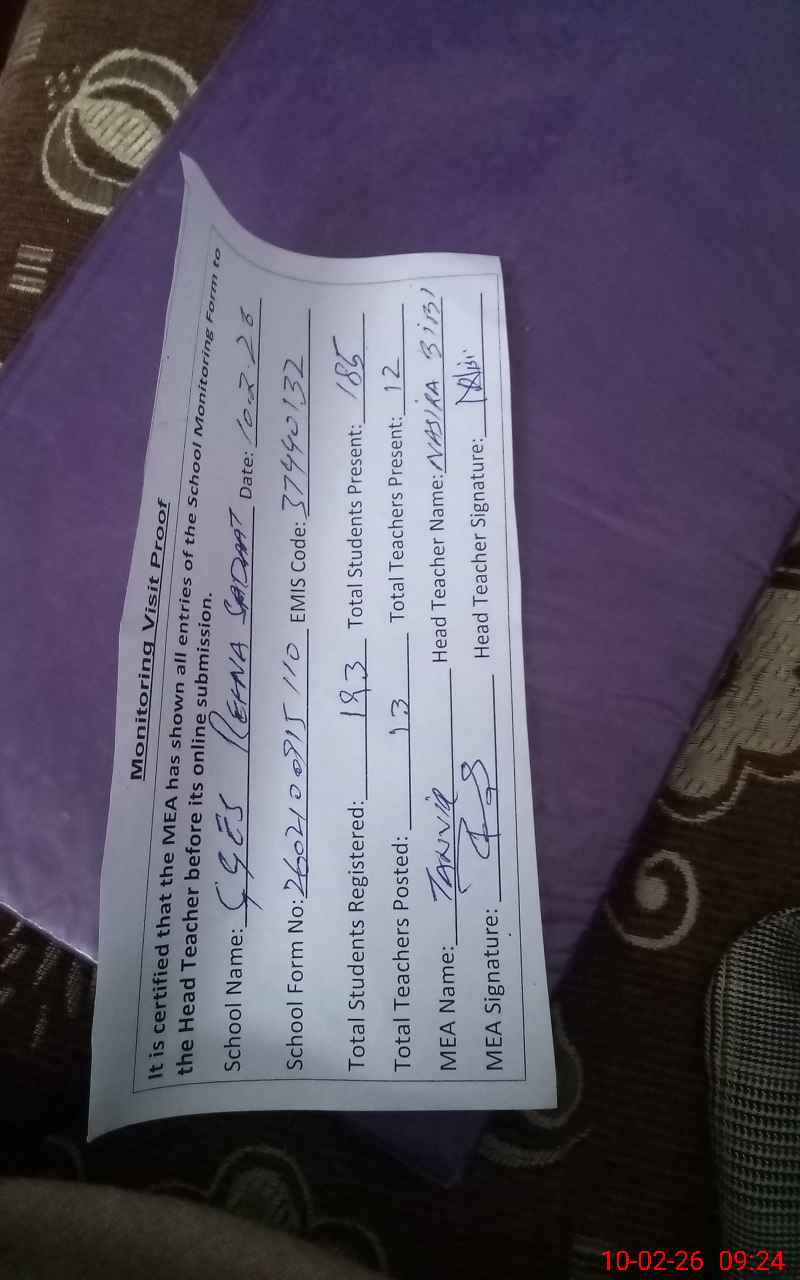 Monitoring Visit Proof
It is certified that the MEA has shown all entries of the School Monitoring Form to
the Head Teacher before its online submission.
School Name: GGES REHNA SADAAT Date: 10-2-26
School Form No: EMIS Code: 37440132
Total Students Registered: 193 Total Students Present: 185
Total Teachers Posted: 13 Total Teachers Present: 12
MEA Name: TANVIR Head Teacher Name: NASIRA BIBI
MEA Signature: Head Teacher Signature:
10-02-26 09:24